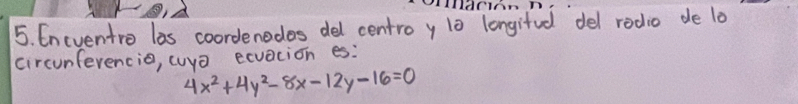 5. Encuentre las coordenadas del centro y la longitud del radio de la
circunferencia, cuya ecuación es:
4x²+4y²-8x-12y-16=0